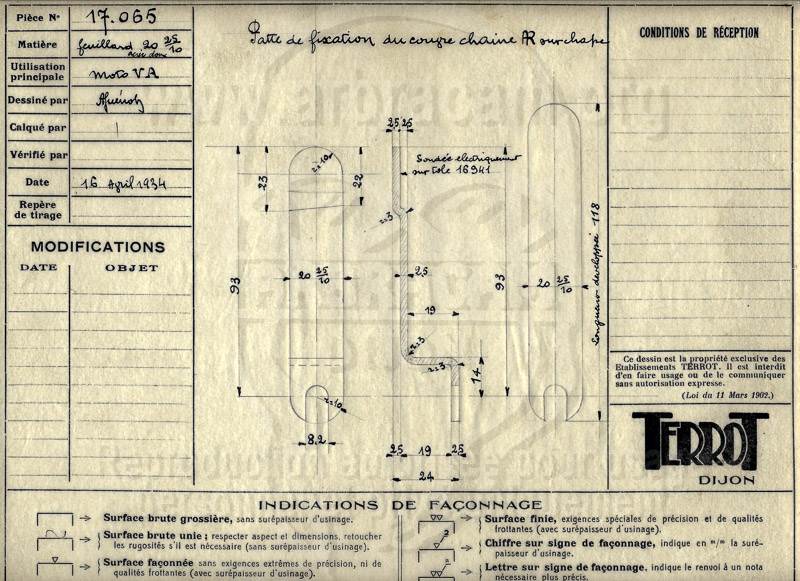 Pièce Nº 17.065
Matière feuillard 20 25/10
acier doux
Utilisation principale Moto VA
Dessiné par
Calqué par
Vérifié par
Date 16 April 1934
Repère de tirage
MODIFICATIONS
DATE OBJET
Patte de fixation du couvre chaine AR sur chape
CONDITIONS DE RÉCEPTION
25 25
Soudée électriquement
sur tole 16941
r=10
23
22
r=3
93
20 25/10
2,5
19
r=3
r=3
14
r=10
8,2
25 19 25
24
93
20 25/10
Longueur developpée 118
Ce dessin est la propriété exclusive des
Etablissements TERROT. Il est interdit
d'en faire usage ou de le communiquer
sans autorisation expresse.
(Loi du 11 Mars 1902.)
TERROT
DIJON
INDICATIONS DE FAÇONNAGE
Surface brute grossière, sans surépaisseur d'usinage.
Surface brute unie ; respecter aspect et dimensions, retoucher
les rugosités s'il est nécessaire (sans surépaisseur d'usinage).
Surface façonnée sans exigences extrêmes de précision, ni de
qualités frottantes (avec surépaisseur d'usinage).
Surface finie, exigences spéciales de précision et de qualités
frottantes (avec surépaisseur d'usinage).
Chiffre sur signe de façonnage, indique en m/m la suré-
paisseur d'usinage.
Lettre sur signe de façonnage, indique le renvoi à un nota
nécessaire plus précis.